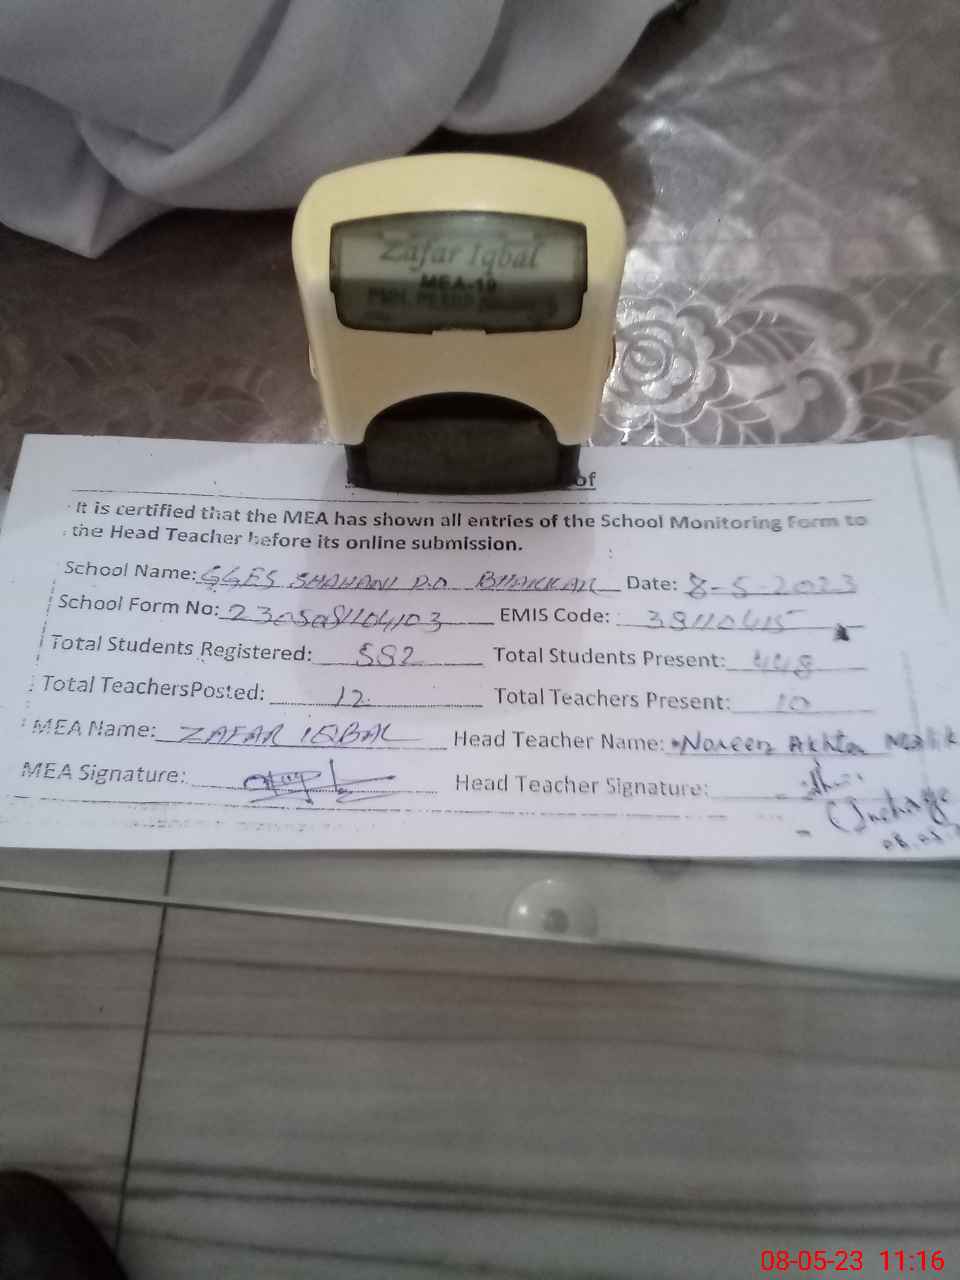 Zafar Iqbal
MEA-19
of
It is certified that the MEA has shown all entries of the School Monitoring Form to
the Head Teacher before its online submission.
School Name: GGES SHAHANI P.O BHAKKAR Date: 8-5-2023
School Form No: EMIS Code: 38110415
Total Students Registered: 582 Total Students Present: 448
Total TeachersPosted: 12 Total Teachers Present: 10
MEA Name: ZAFAR IQBAL Head Teacher Name: Noreen Akhtar Malik
MEA Signature: Head Teacher Signature:
(Incharge
08-05-23 11:16